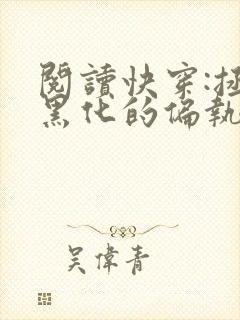 閱讀快穿:拯
黑化的偏執
吳偉青